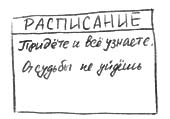 РАСПИСАНИЕ
Придёте и всё узнаете.
От судьбы не уйдёшь